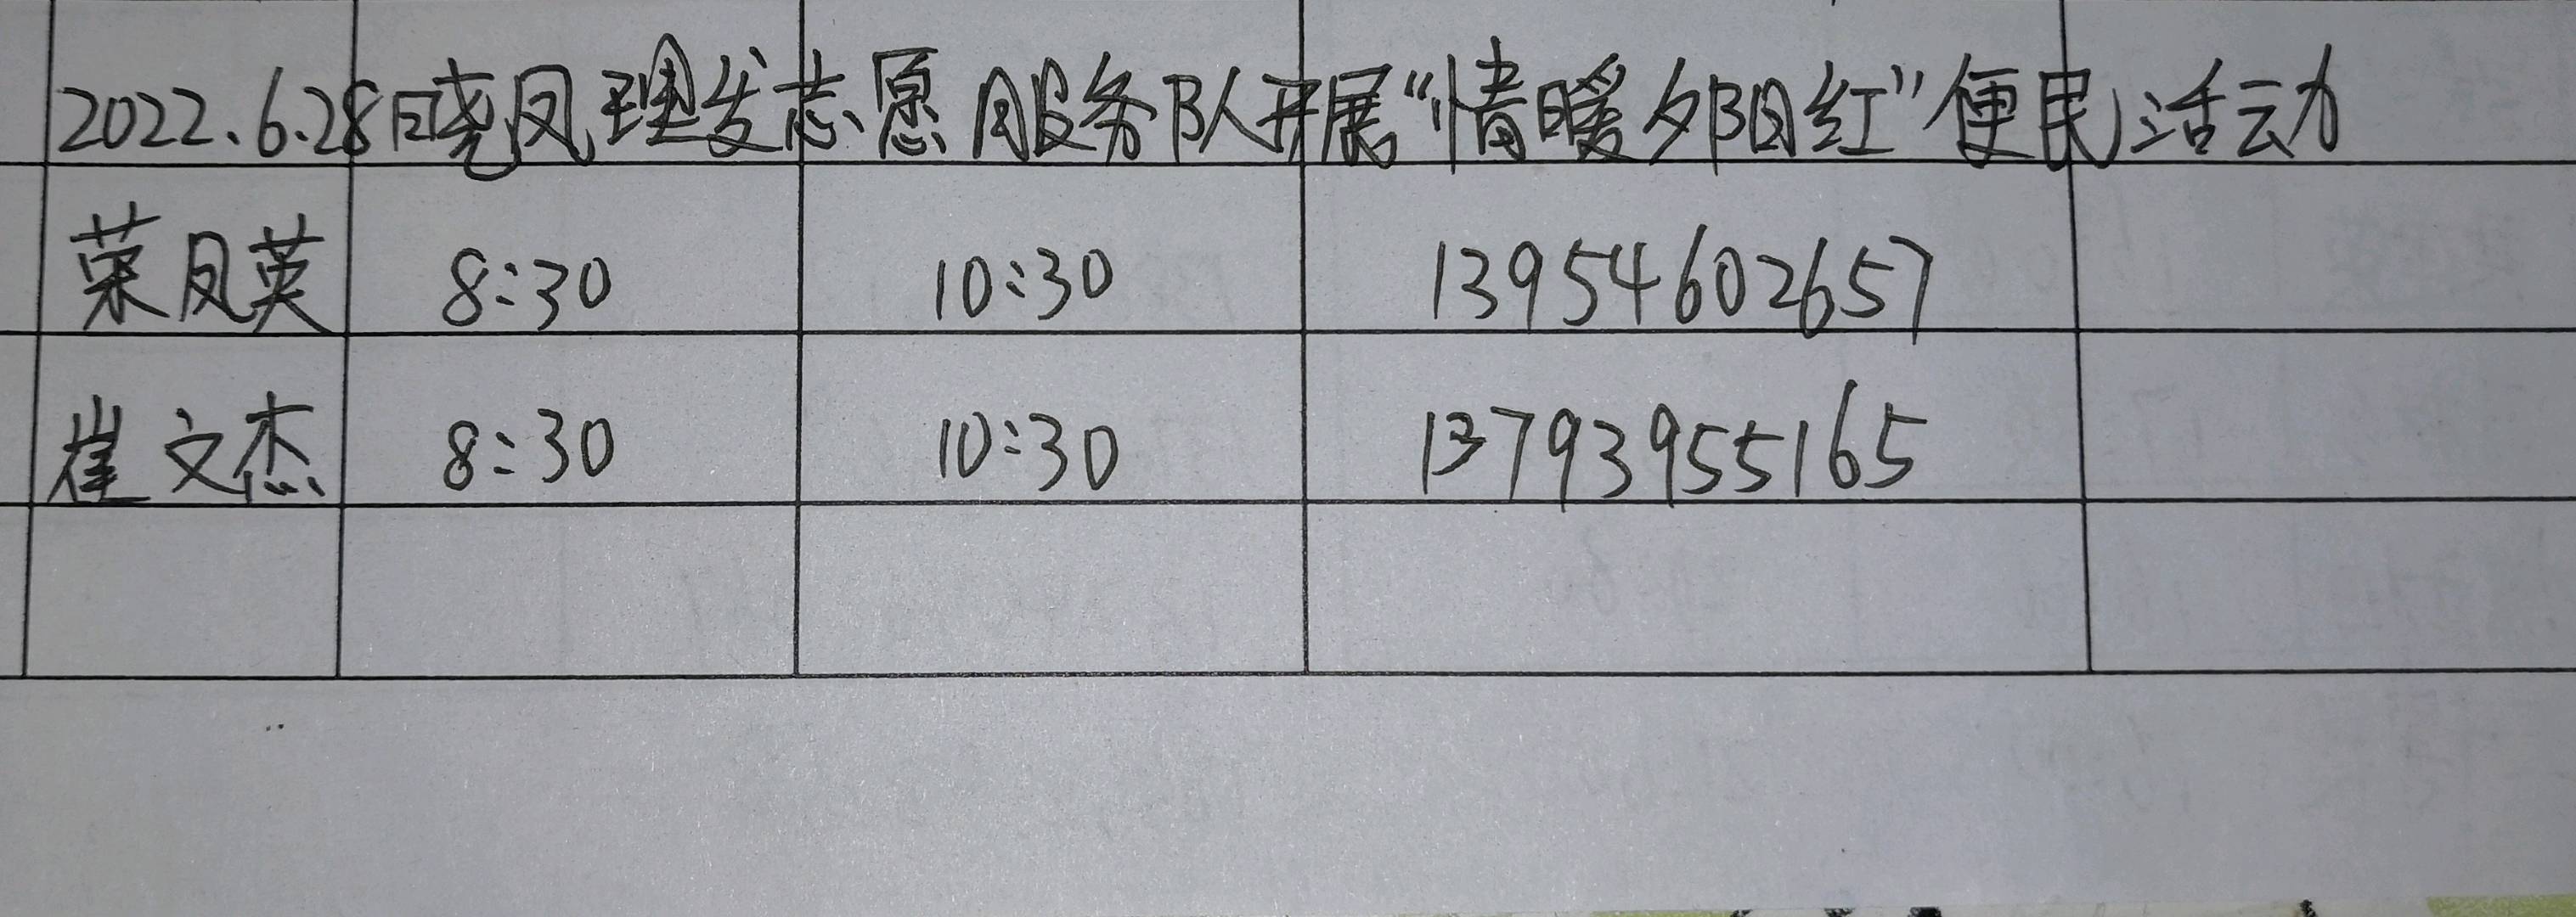 2022.6.28日晓凤理发志愿服务队开展“情暖夕阳红”便民活动
荣凤英 8:30 10:30 13954602657
崔文杰 8:30 10:30 13793955165